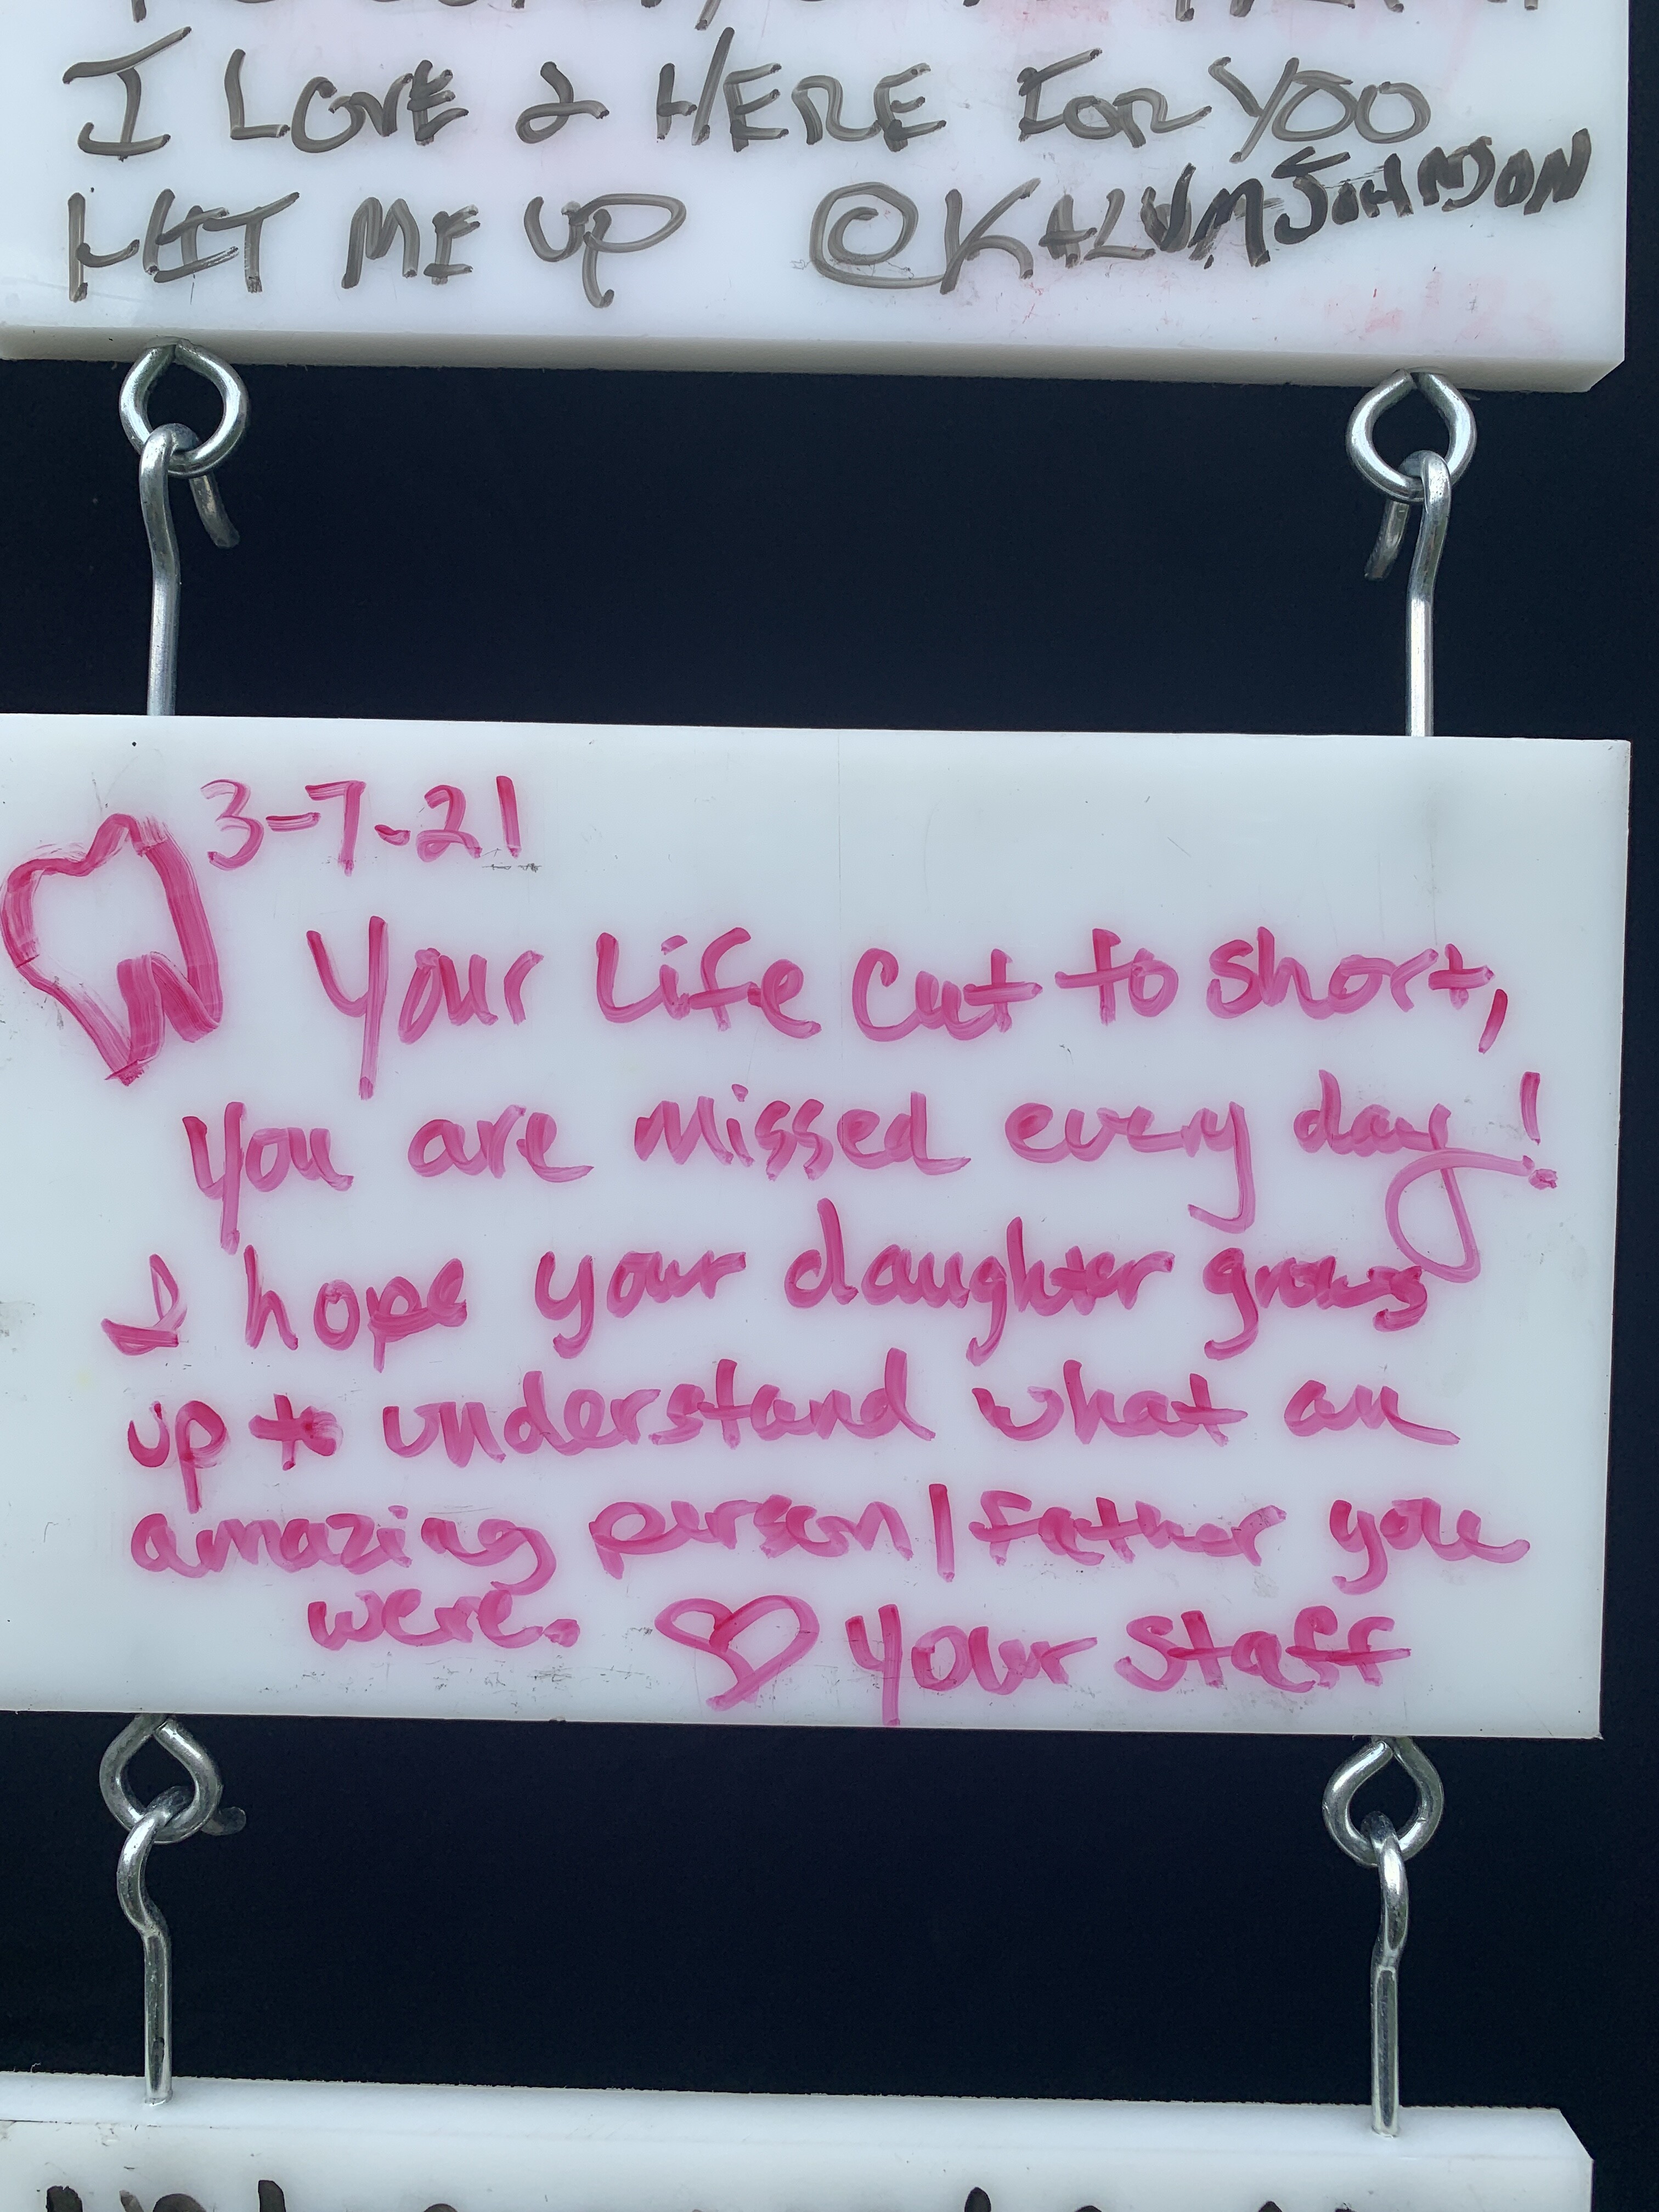 I LOVE & HERE FOR YOU
HIT ME UP @KALUMJOHNSON
3-7-21
Your Life cut to short,
you are missed every day!
I hope your daughter grows
up to understand what an
amazing person/father you
were. ♡ your staff